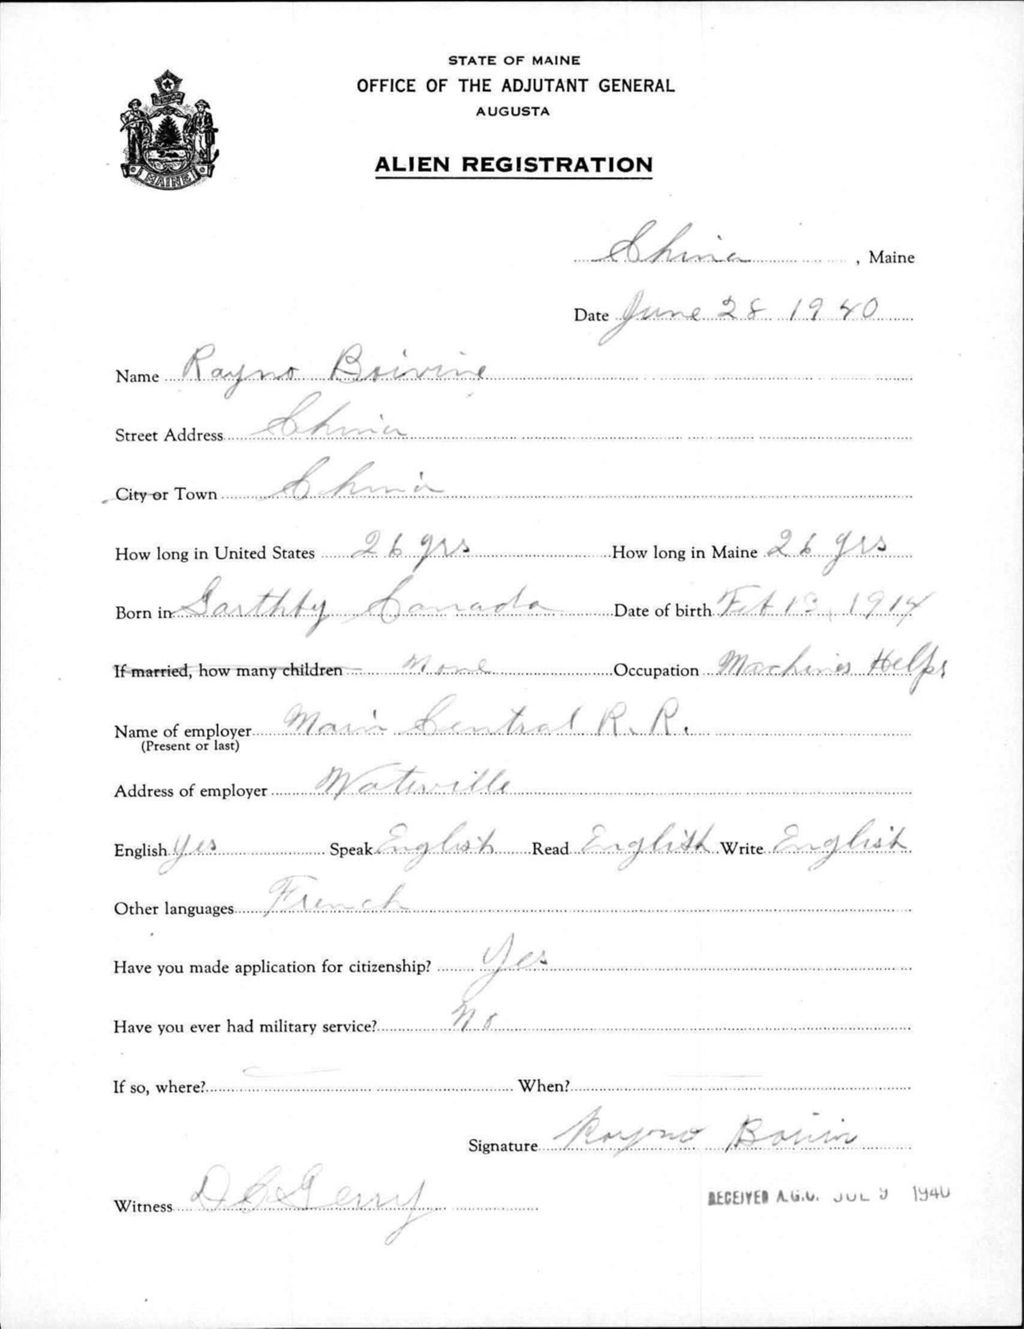 STATE OF MAINE
OFFICE OF THE ADJUTANT GENERAL
AUGUSTA
ALIEN REGISTRATION
MAINE
China, Maine
Date June 28 1940
Name Rayno Boivine
Street Address China
City or Town China
How long in United States 26 yrs How long in Maine 26 yrs
Born in Garthby Canada Date of birth Feb 13, 1914
If married, how many children None Occupation Machines Helper
Name of employer Main Central R.R.
(Present or last)
Address of employer Waterville
English Yes Speak English Read English Write English
Other languages French
Have you made application for citizenship? Yes
Have you ever had military service? No
If so, where? — When? —
Signature Rayno Boivin
Witness D C Gerry
RECEIVED A.G.O. JUL 9 1940